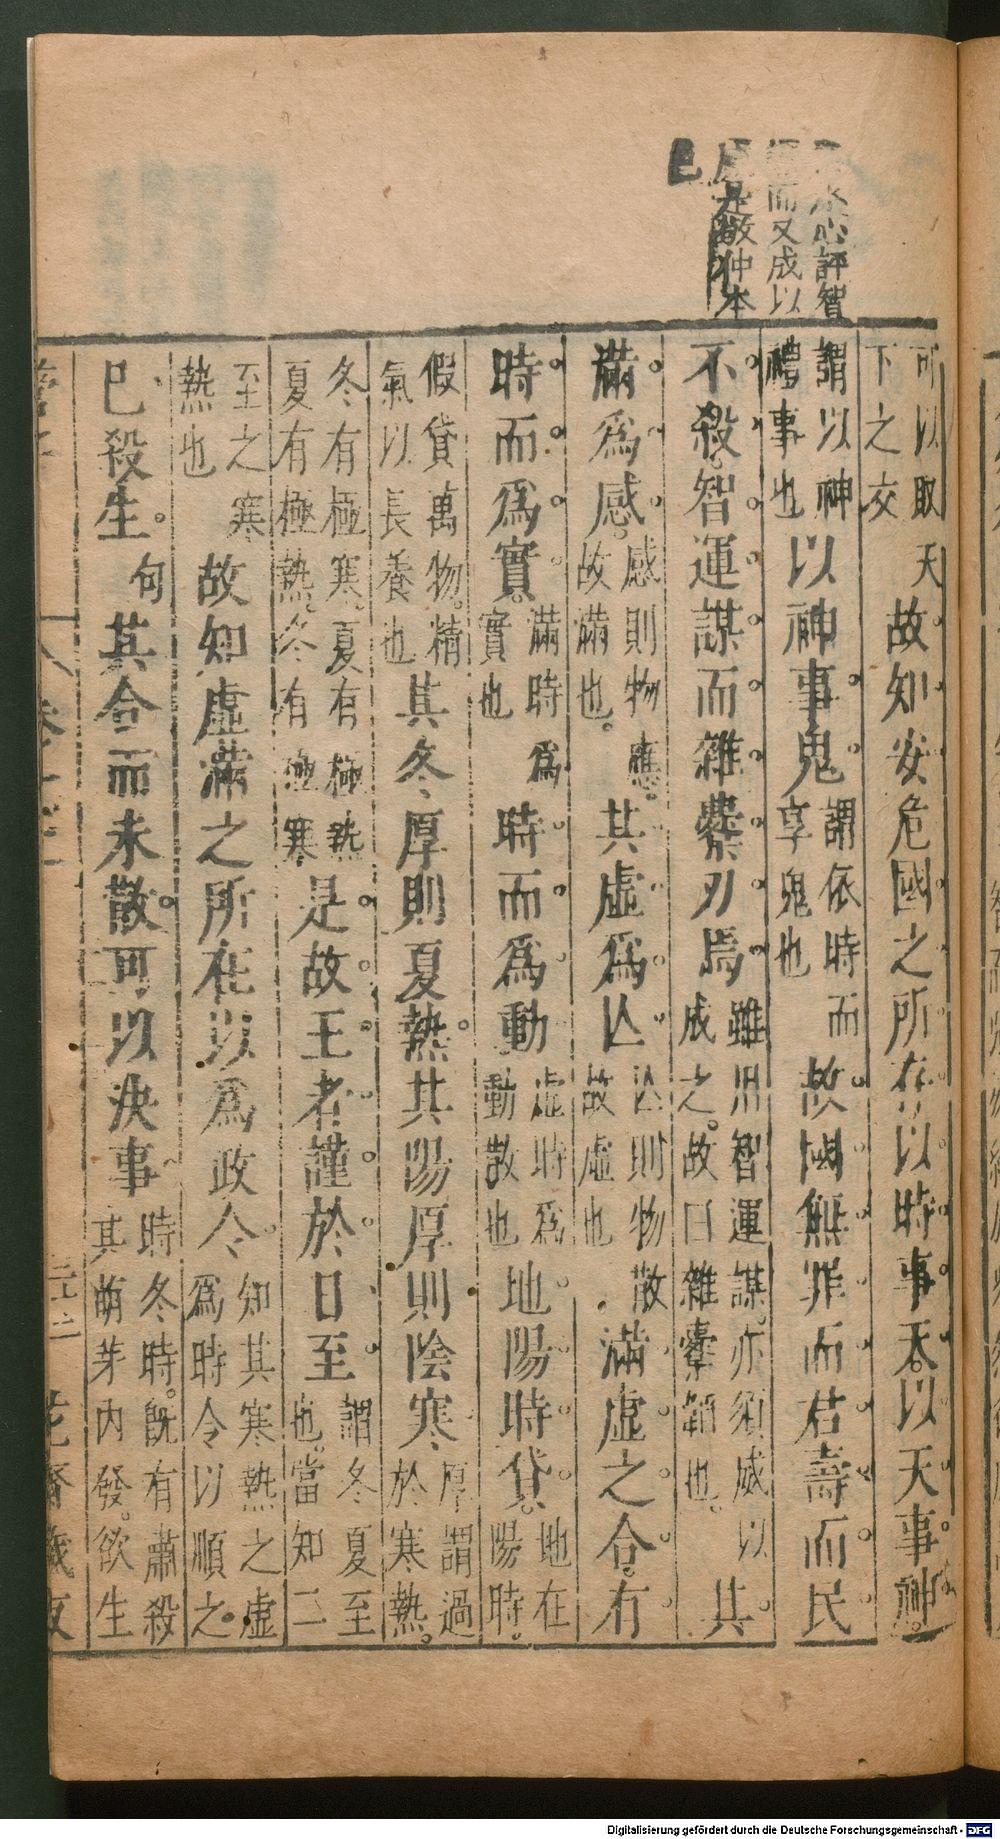 水心評智
而又成以
是敬仲本
色
可以取天下之交故知安危國之所在以時事天以天事神
謂以神禮事也以神事鬼謂依時而享鬼也故國無罪而君壽而民
不殺智運謀而雜櫜刃焉雖用智運謀亦須威以成之故曰雜櫜韜也其
滿爲感感則物應故滿也其虛爲亾亾則物散故虛也滿虛之合有
時而爲實滿時爲實也時而爲動虛時爲動散也地陽時貸地在陽時
假貸萬物精氣以長養也其冬厚則夏熱其陽厚則陰寒厚謂過於寒熱
冬有極寒夏有極熱夏有極熱冬有極寒是故王者謹於日至謂冬夏至也當知二
至之寒熱也故知虛滿之所在以爲政令知其寒熱之虛爲時令以順之
已殺生句其合而未散可以決事時冬時既有肅殺其萌芽內發欲生
管子 卷十二 花齋藏板
Digitalisierung gefördert durch die Deutsche Forschungsgemeinschaft - DFG